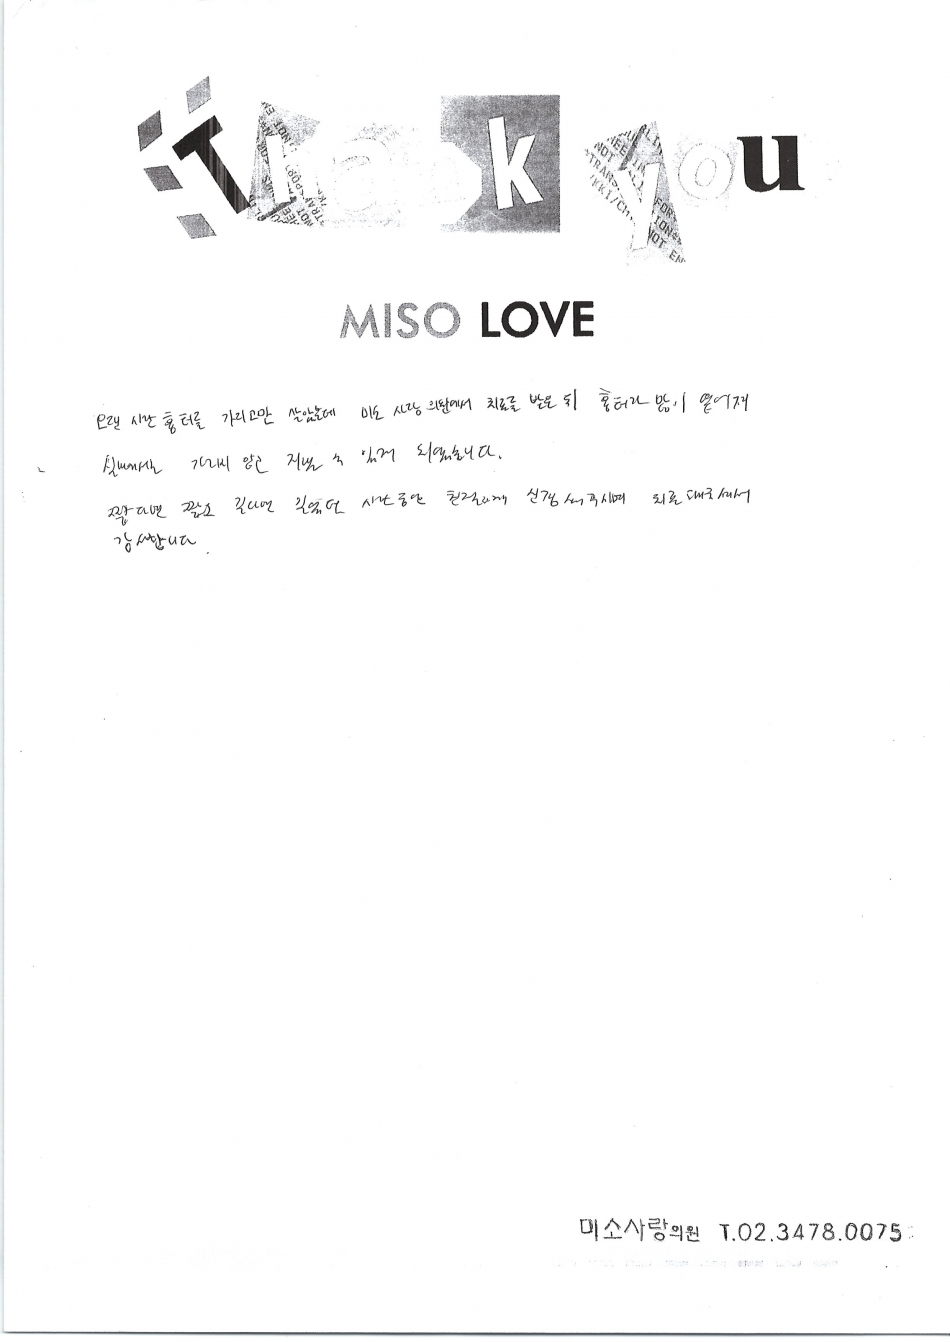 Thank you
MISO LOVE
오랜 시간 흉터를 가리고만 살았는데 미소 사랑 의원에서 치료를 받은 뒤 흉터가 많이 옅어져
실내에서는 가리지 않고 지낼 수 있게 되었습니다.
짧다면 짧고 길다면 길었던 시간동안 친절하게 신경 써주시며 치료해주셔서
감사합니다.
미소사랑의원 T.02.3478.0075